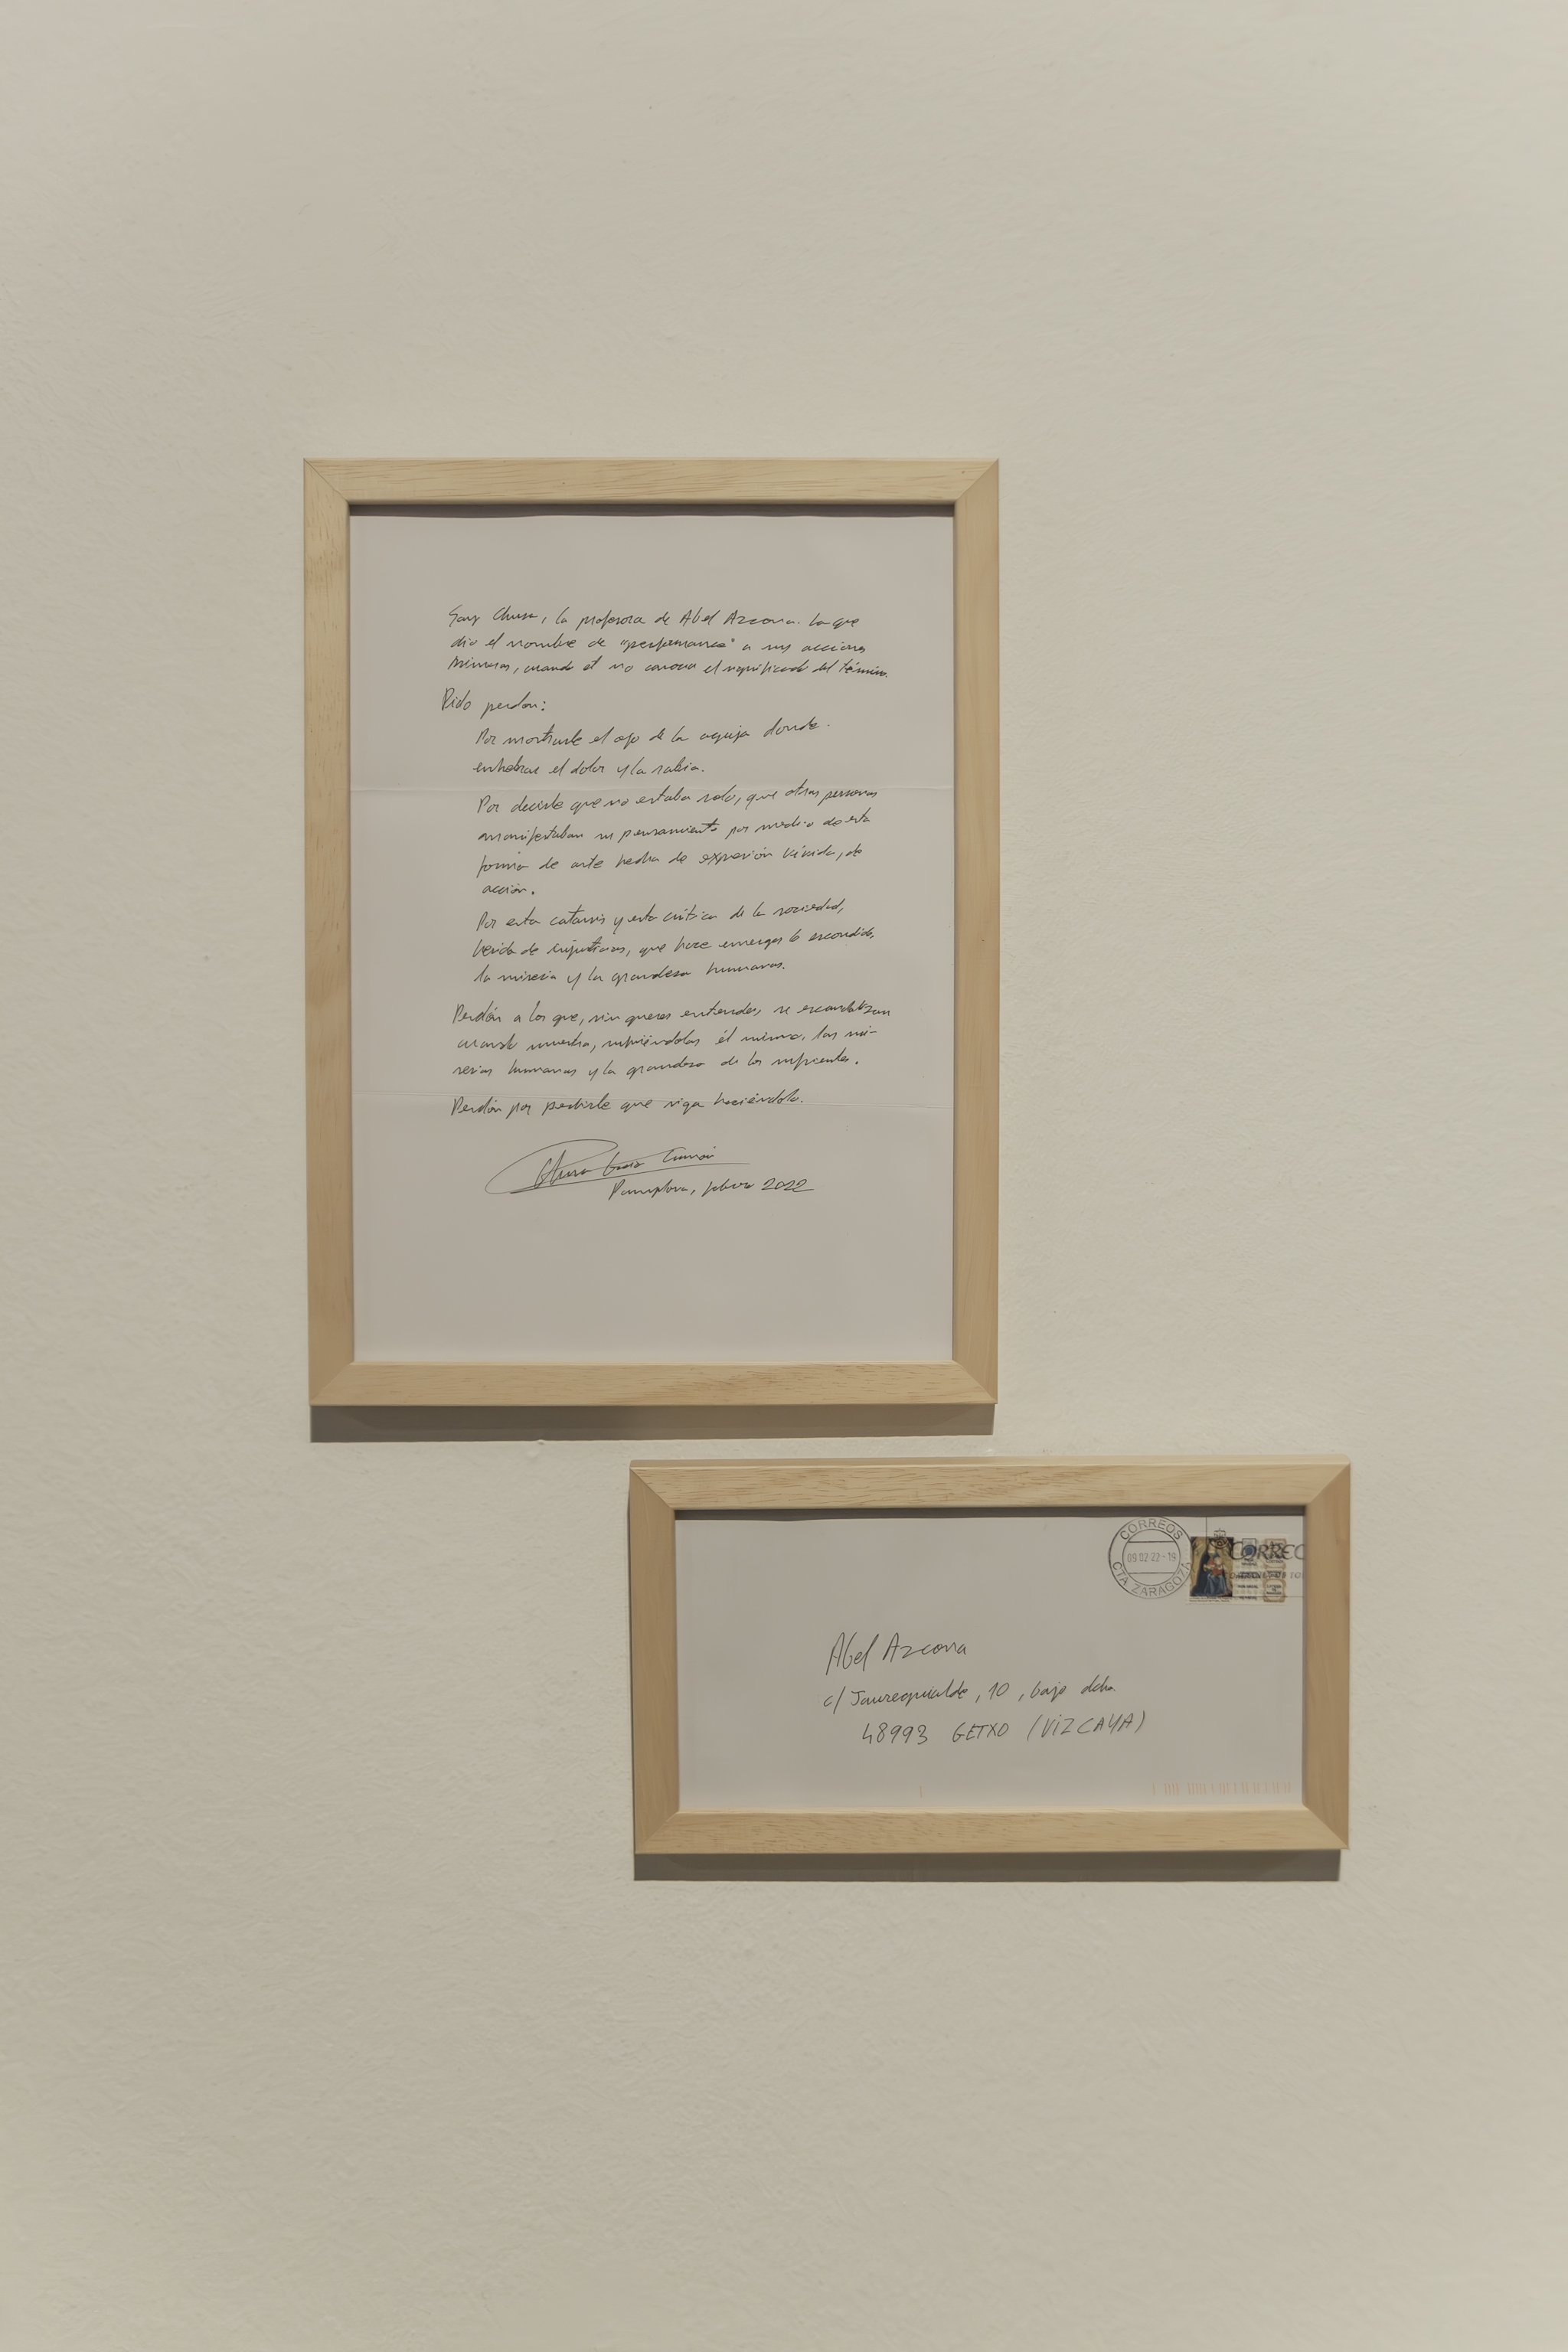 Soy Chusa, la profesora de Abel Azcona. La que
dio el nombre de "performance" a sus acciones
mismas, cuando él no conocía el significado del término.
Pido perdón:
Por mostrarle el ojo de la aguja donde
enhebrar el dolor y la rabia.
Por decirle que no estaba solo, que otras personas
manifestaban su pensamiento por medio de esta
forma de arte hecha de expresión vívida, de
acción.
Por esta catarsis y esta crítica de la sociedad,
de injusticias, que hace emerger lo escondido,
la miseria y la grandeza humanas.
Perdón a los que, sin querer entender, se escandalizan
cuando muestra, sufriéndolas él mismo, las mi-
serias humanas y la grandeza de los sufrientes.
Perdón por pedirle que siga haciéndolo.
Chusa
Pamplona, febrero 2022
CORREOS
09 02 22 - 19
CTA ZARAGOZA
CORREO
Abel Azcona
c/ , 10, bajo dcha.
48993 GETXO (VIZCAYA)